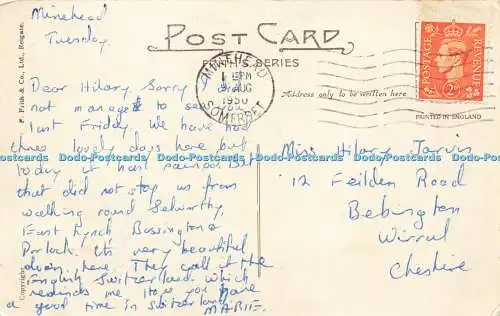 Minehead
Tuesday.
POST CARD
FRITH'S SERIES
MINEHEAD
1 PM
AUG
1950
SOMERSET
Address only to be written here
POSTAGE
REVENUE
PRINTED IN ENGLAND
F. Frith & Co., Ltd., Reigate.
Copyright.
Dear Hilary, Sorry I did
not manage to see you
last Friday. We have had
three lovely days here but
today it has rained. But
that did not stop us from
walking round Selworthy,
East Lynch Bossington &
Porlock. Its very beautiful
down here. They call it the
English Switzerland which
reminds me Hope you have
a good time in Switzerland
MARIE.
Miss Hilary Jarvis
12 Feilden Road
Bebington
Wirral
Cheshire
Dodo-Postcards Dodo-Postcards Dodo-Postcards Dodo-Postcards Dodo-Postcards Dodo-Postcards